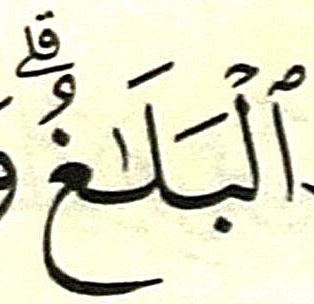 ٱلْبَلَـٰغُ ۗ